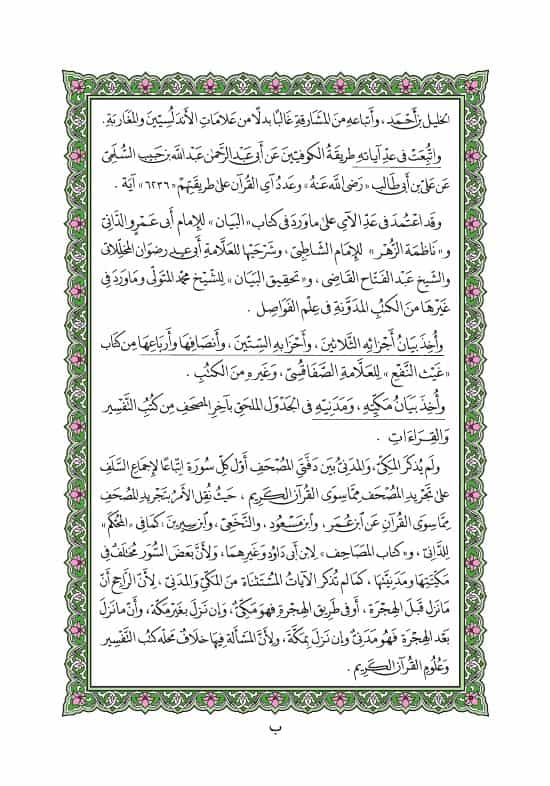 الخليل بن أحمد، وأتباعه من المشارقة غالبًا بدلًا من علامات الأندلسيين والمغاربة.
واتُّبِعَتْ في عدِّ آياته طريقةُ الكوفيّينَ عَن أبي عبد الرحمٰن عبد الله بن حبيب السُّلَمِيّ
عَن عَلِيّ بن أبي طالب «رَضي اللهُ عَنهُ» وعدد آي القرآن على طريقتهم «٦٢٣٦» آيَة.
وقد اعتُمِدَ في عَدِّ الآي على ما ورد في كتاب «البيان» للإمام أبي عمرو الدَّاني
و«ناظمة الزُّهْر» للإمام الشاطِبيّ، وشرحِهَا للعلَّامة أبي عيد رضوان المخللاتي
والشيخ عبد الفتاح القاضي، و«تحقيق البيان» للشيخ محمد المتولي وما ورد في
غيرها من الكتب المدوَّنة في علم الفواصل.
وأُخِذَ بيانُ أجزائِه الثلاثين، وأحزابِه الستين، وأنصافِها وأرباعِها من كتاب
«غيث النَّفع» للعلّامة الصَّفاقُسيّ، وغيره من الكتُب.
وأُخِذَ بيانُ مكّيِّه، ومدنيِّه في الجدول الملحق بآخر المصحف من كتب التفسير
والقراءات.
ولم يُذكَر المكيُّ، والمدنيُّ بين دفَّتي المصحف أوّل كلّ سورة اتباعًا لإجماع السَّلف
على تجريد المصحف ممّا سوى القرآن الكريم، حيث نُقِل الأمرُ بتجريد المصحف
ممّا سوى القرآن عن ابن عمر، وابن مسعود، والنَّخَعيّ، وابن سيرين: كما في «المُحْكَم»
للدَّاني، و«كتاب المصاحف» لابن أبي داود وغيرهما، ولأنَّ بعض السُّوَر مختلفٌ في
مكيّتها ومدنيّتها، كما لم تُذكر الآياتُ المستثناة من المكيّ والمدنيّ، لأنّ الرّاجح أنّ
ما نزل قبل الهجرة، أو في طريق الهجرة فهو مكيٌّ، وإن نزل بغير مكّة، وأنّ ما نزل
بعد الهجرة فهو مدنيٌّ وإن نزل بمكّة، ولأنّ المسألة فيها خلافٌ محلُّه كتب التفسير
وعُلوم القرآن الكريم.
ب